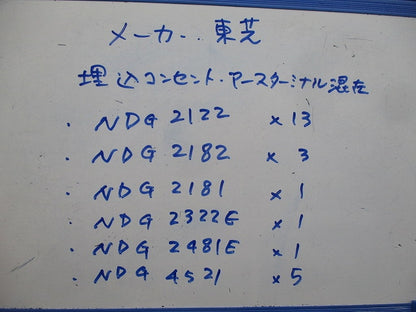 メーカー．東芝
埋込コンセント・アースターミナル混在
・NDG 2122 × 13
・NDG 2182 × 3
・NDG 2181 × 1
NDG 2322E × 1
・NDG 2481E × 1
・NDG 4521 × 5